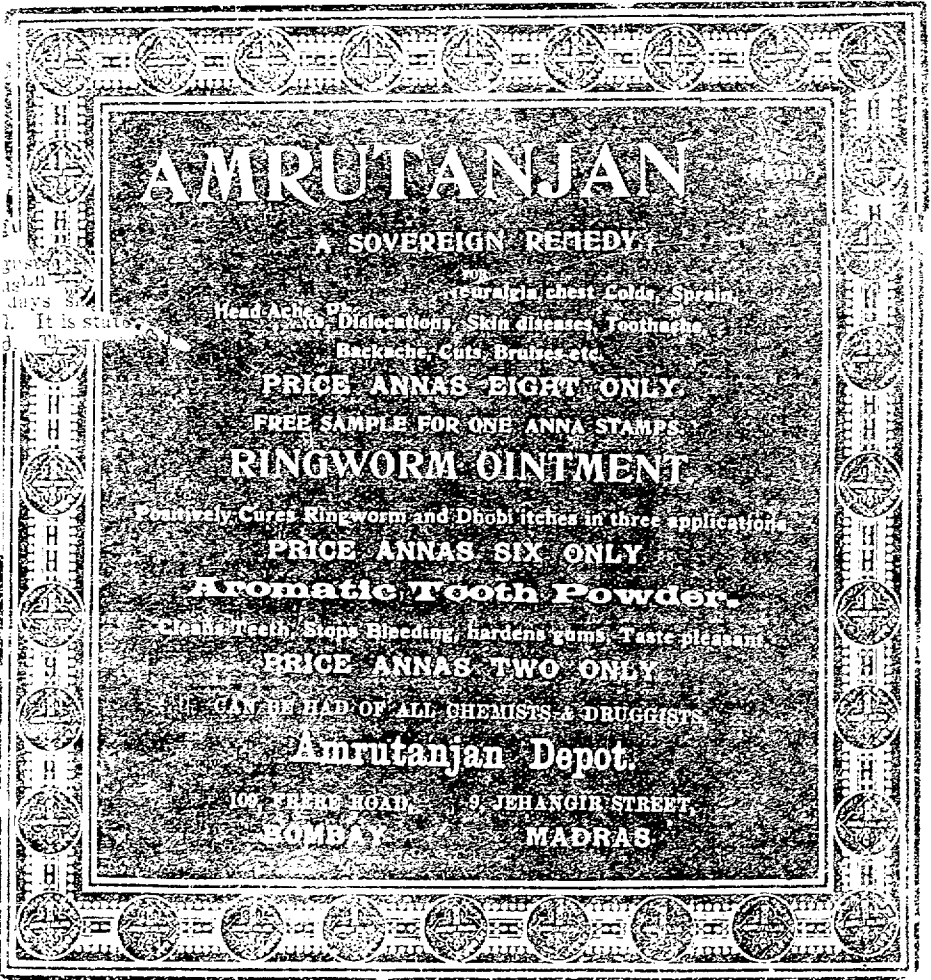 AMRUTANJAN (REGD)
A SOVEREIGN REMEDY
FOR
Head-Ache, Neuralgia chest Colds, Sprain,
Dislocations, Skin diseases, Toothache,
Backache, Cuts, Bruises etc.
PRICE ANNAS EIGHT ONLY.
FREE SAMPLE FOR ONE ANNA STAMPS
RINGWORM OINTMENT
Positively Cures Ringworm and Dhobi itches in three applications
PRICE ANNAS SIX ONLY
Aromatic Tooth Powder.
Cleans Teeth, Stops Bleeding, hardens gums, Taste pleasant.
PRICE ANNAS TWO ONLY
CAN BE HAD OF ALL CHEMISTS & DRUGGISTS,
Amrutanjan Depot.
109, FRERE ROAD, 9, JEHANGIR STREET,
BOMBAY MADRAS.
days
It is state